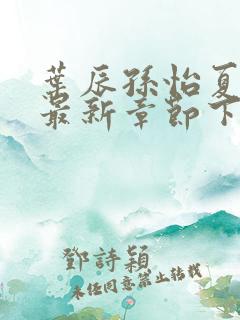 葉辰孫怡夏
最新章節下
鄧詩穎
未任同意禁止转载